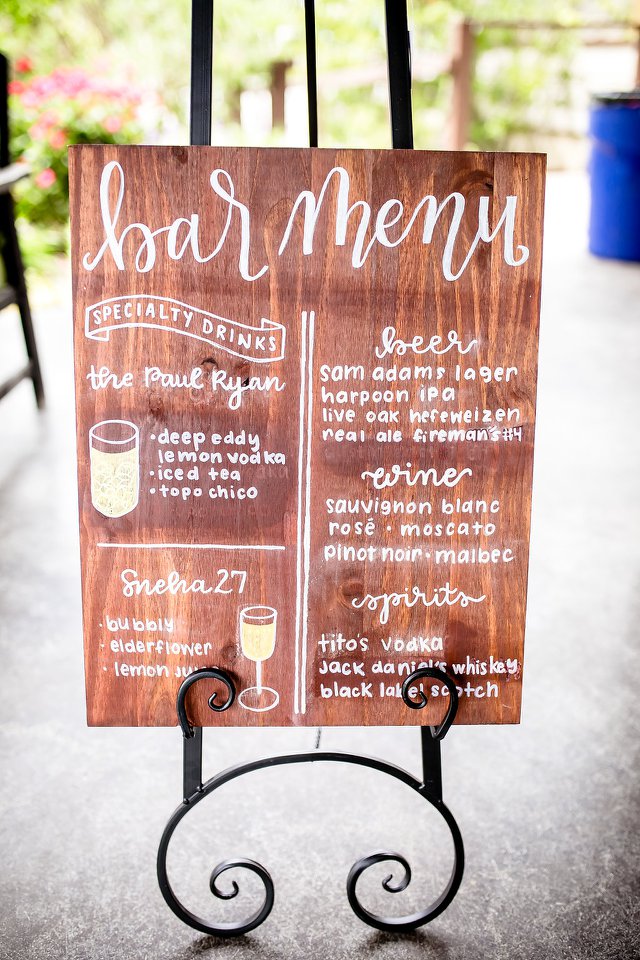 bar menu
SPECIALTY DRINKS
the Paul Ryan
• deep eddy
lemon vodka
• iced tea
• topo chico
Sneha 27
• bubbly
• elderflower
• lemon juice
beer
sam adams lager
harpoon IPA
live oak hefeweizen
real ale fireman's #4
wine
sauvignon blanc
rosé • moscato
pinot noir • malbec
spirits
tito's vodka
jack daniel's whiskey
black label scotch